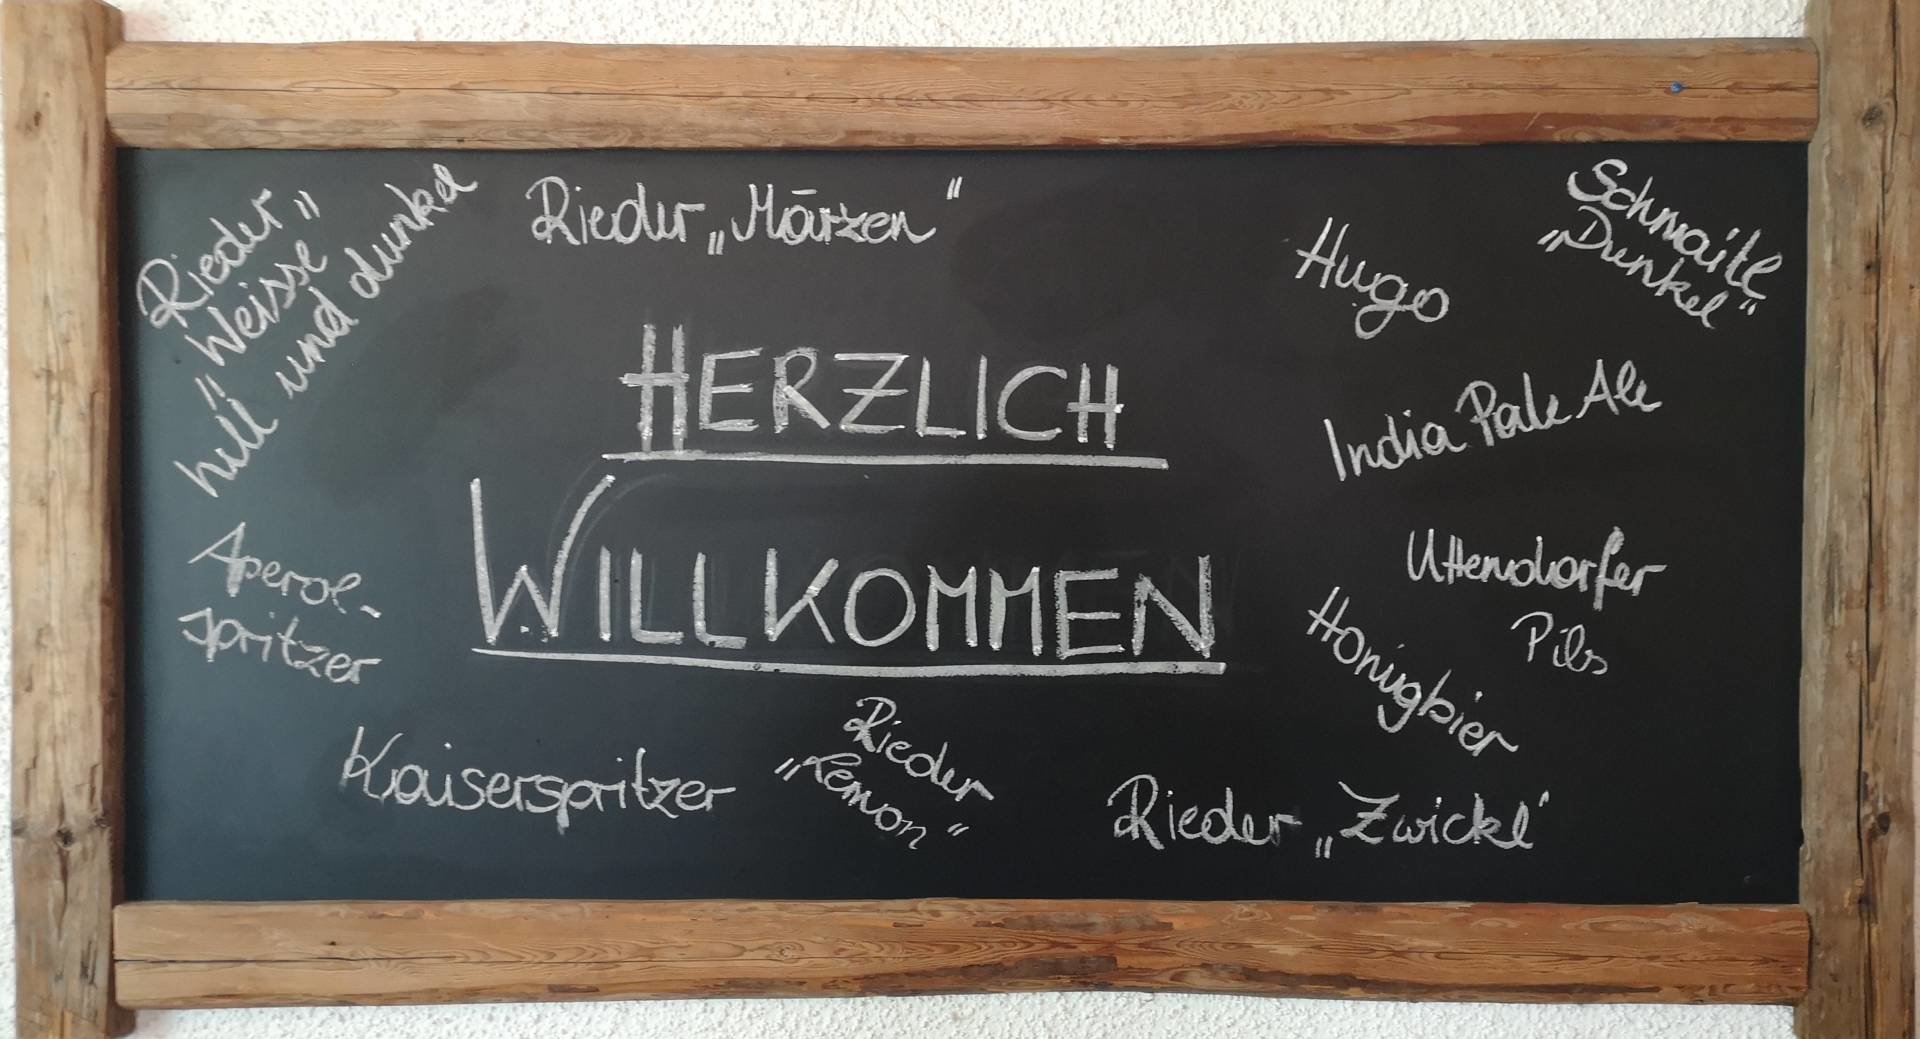 Rieder
„Weisse"
hell und dunkel
Rieder „Märzen"
Hugo
Schnaitl
„Dunkel"
HERZLICH
WILLKOMMEN
India Pale Ale
Aperol-
spritzer
Uttendorfer
Pils
Honigbier
Kaiserspritzer
Rieder
„Lemon"
Rieder „Zwickl"